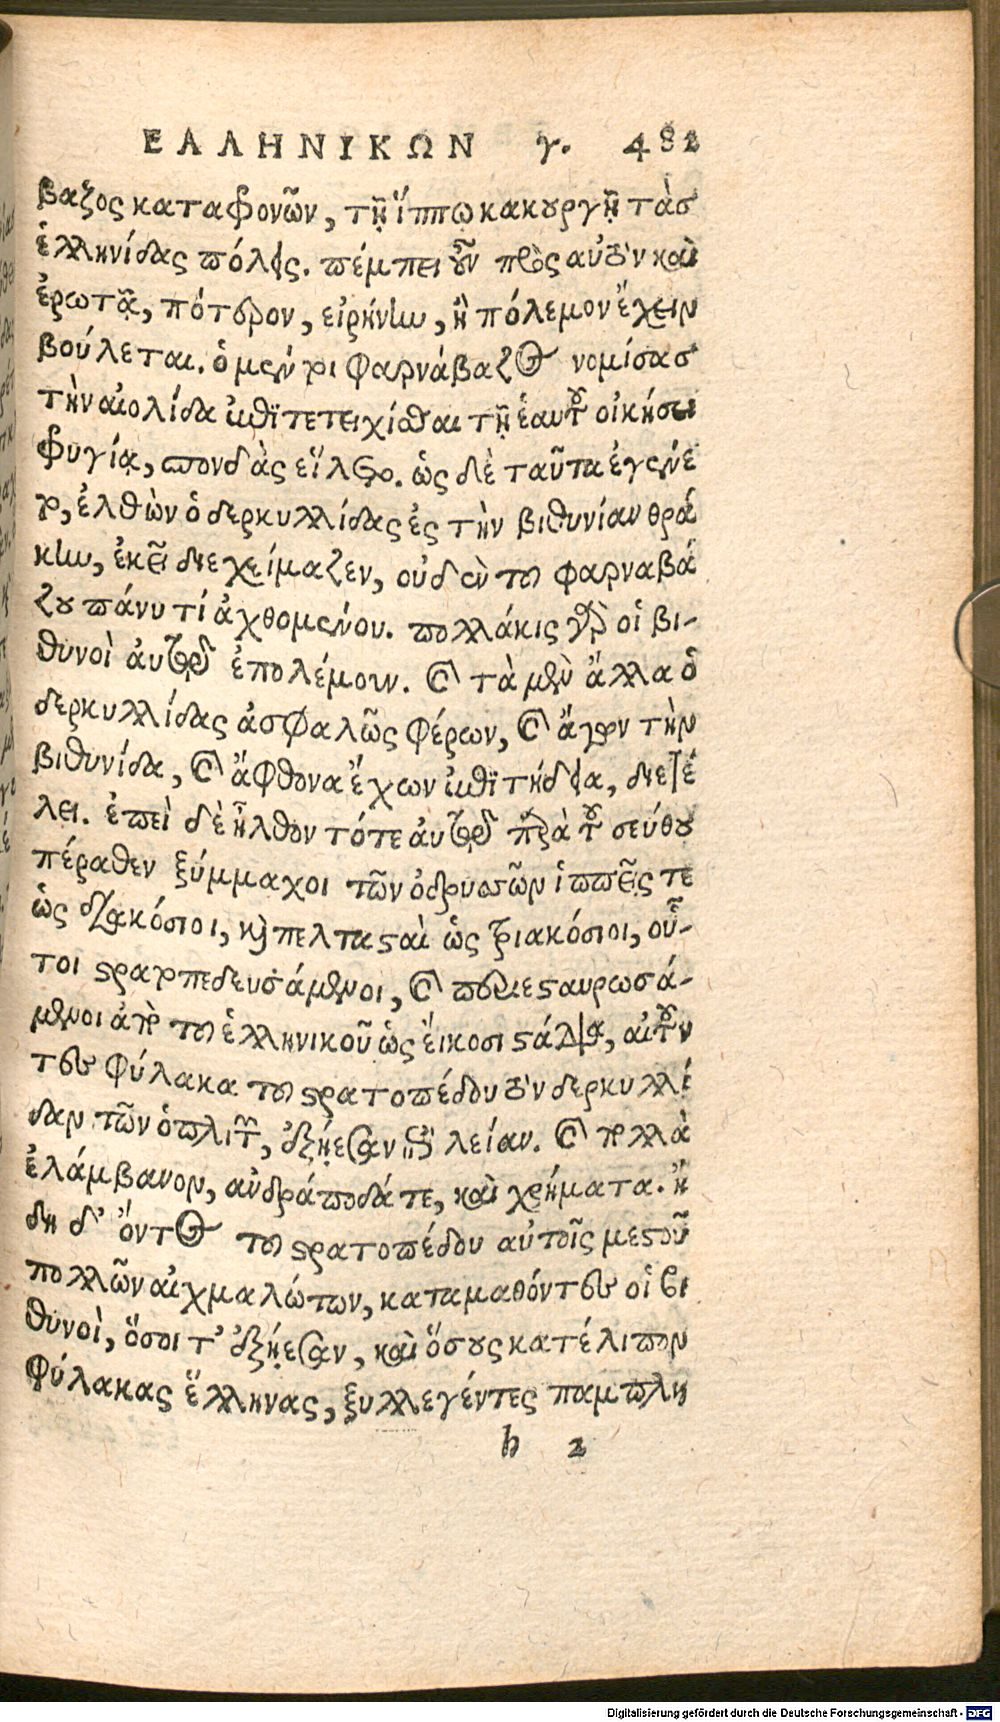 ΕΛΛΗΝΙΚΩΝ γ. 482
βαζος καταφρονῶν, τῇ ἵππῳ κακουργῇ τὰσ
ἑλληνίδας πόλεις. πέμπει οὖν πρὸς αὐτὸν καὶ
ἐρωτᾷ, πότερον, εἰρήνην, ἢ πόλεμον ἔχειν
βούλεται. ὁ μέντοι φαρνάβαζος νομίσασ
τὴν αἰολίδα ἐπιτετειχίσθαι τῇ ἑαυτοῦ οἰκήσει
φρυγίᾳ, σπονδὰς εἵλετο. ὡς δὲ ταῦτα ἐγένε
το, ἐλθὼν ὁ δερκυλλίδας ἐς τὴν βιθυνίαν θρά
κην, ἐκεῖ διεχείμαζεν, οὐδὲν τοῦ φαρναβά
ζου πάνυ τί ἀχθομένου. πολλάκις γὰρ οἱ βι-
θυνοὶ αὐτῷ ἐπολέμουν. καὶ τὰ μὲν ἄλλα ὁ
δερκυλλίδας ἀσφαλῶς φέρων, καὶ ἄγων τὴν
βιθυνίδα, καὶ ἄφθονα ἔχων ἐπιτήδεια, διετέ
λει. ἐπεὶ δὲ ἦλθον τότε αὐτῷ παρὰ τοῦ σεύθου
πέραθεν ξύμμαχοι τῶν ὀδρυσῶν ἱππεῖς τε
ὡς διακόσιοι, καὶ πελτασταὶ ὡς τριακόσιοι, οὗ-
τοι στρατοπεδευσάμενοι, καὶ περιεσταυρωσά-
μενοι ἀπὸ τοῦ ἑλληνικοῦ ὡς εἴκοσι στάδια, αἰτοῦν
τες φύλακα τοῦ στρατοπέδου τὸν δερκυλλί
δαν τῶν ὁπλιτῶν, ἐξῄεσαν ἐπὶ λείαν. καὶ πολλὰ
ἐλάμβανον, ἀνδράποδά τε, καὶ χρήματα. ἤ
δη δ' ὄντος τοῦ στρατοπέδου αὐτοῖς μεστοῦ
πολλῶν αἰχμαλώτων, καταμαθόντες οἱ βι
θυνοὶ, ὅσοι τ' ἐξῄεσαν, καὶ ὅσους κατέλιπον
φύλακας ἕλληνας, ξυλλεγέντες παμπλη
h 2
Digitalisierung gefördert durch die Deutsche Forschungsgemeinschaft - DFG